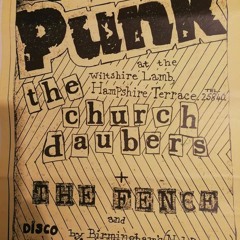 Punk
at the
Wiltshire Lamb,
Hampshire Terrace. TEL.
the
church
daubers
+
THE FENCE
and
DISCO
by Birmingham